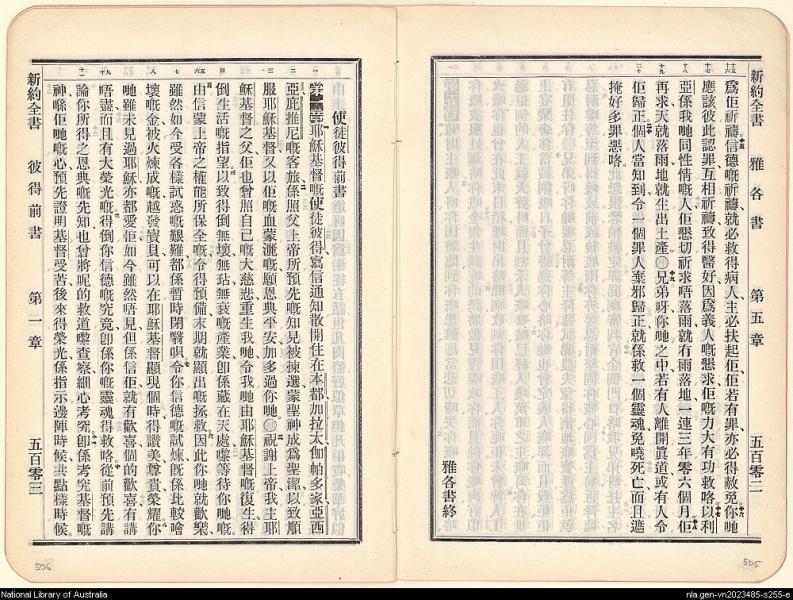 新約全書 雅各書 第五章 五百零二
爲佢祈禱信德嘅祈禱就必救得病人主必扶起佢佢若有罪亦必得赦免你哋
應該彼此認罪互相祈禱致得醫好因爲義人嘅懇求佢嘅力大有功效咯以利
亞係我哋同性情嘅人佢懇切祈求唔落雨就有雨落地一連三年零六個月佢
再求天就落雨地就生出土產○兄弟呀你哋之中若有人離開眞道或有人令
佢歸正個人當知到令一個罪人棄邪歸正就係救一個靈魂免嘵死亡而且遮
掩好多罪惡咯
雅各書終
505
使徒彼得前書
耶穌基督嘅使徒彼得寫信通知散開住在本都加拉太伽帕多家亞西
亞庇推尼嘅客旅係照父上帝所預先嘅知見被揀選蒙聖神成爲聖潔以致順
服耶穌基督又以佢嘅血蒙灑嘅願恩典平安加多過你哋○祝謝上帝我主耶
穌基督之父佢也曾照自己嘅大慈悲重生我哋令我哋由耶穌基督嘅復生得
倒生活嘅指望以致得倒無壞無玷無衰嘅產業卽係藏在天處嚟等待你哋嘅
由信蒙上帝之權能所保全嘅令得預備末期就顯出嘅拯救因此你哋就歡樂
雖然如今受各樣試惑嘅艱難都係暫時閉翳唄令你信德嘅試煉旣係比較噲
壞嘅金被火煉成嘅越發寶貝可以在耶穌基督顯現個時得讚美尊貴榮耀你
哋雖未見過耶穌亦都愛佢如今雖然唔見但係信佢就有歡喜個的歡喜有講
唔盡而且有大榮光嘅得倒你信德嘅究竟卽係你哋嘅靈魂得救咯從前預先講
論你所得之恩典嘅先知也曾將呢的救道嚟查察細心考究卽係考究基督嘅
神喺佢哋嘅心預先證明基督受苦後來得榮光係指示邊陣時候共點樣時候
新約全書 彼得前書 第一章 五百零三
506
National Library of Australia
nla.gen-vn2023485-s255-e